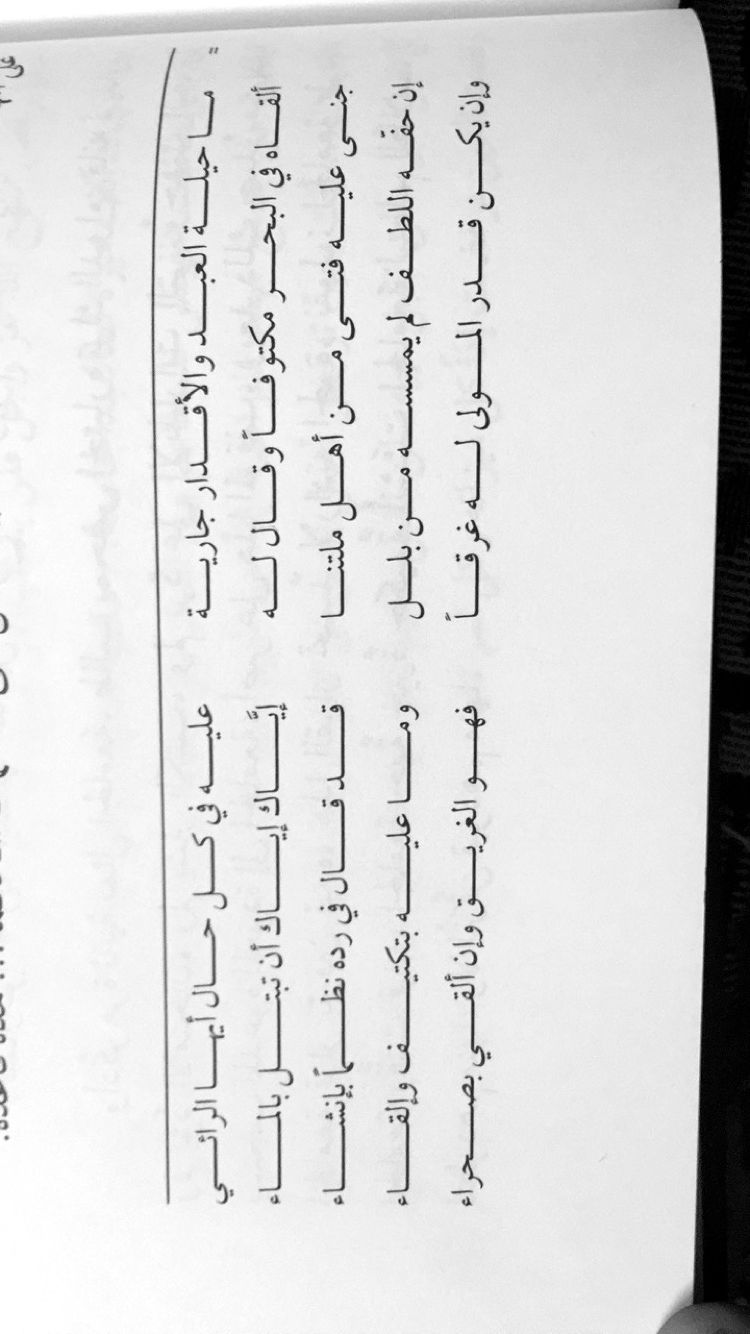 = ما حيلة العبد والأقدار جارية عليه في كل حال أيها الرائي
ألقاه في البحر مكتوفاً وقال له إيَّاك إياك أن تبتل بالماء
جنى عليه فتى من أهل ملتنا قد قال في رده نظماً بإنشاء
إن حفه اللطف لم يمسسه من بلل وما عليه بتكتيف وإلقاء
وإن يكن قدر المولى له غرقاً فهو الغريق وإن ألقي بصحراء